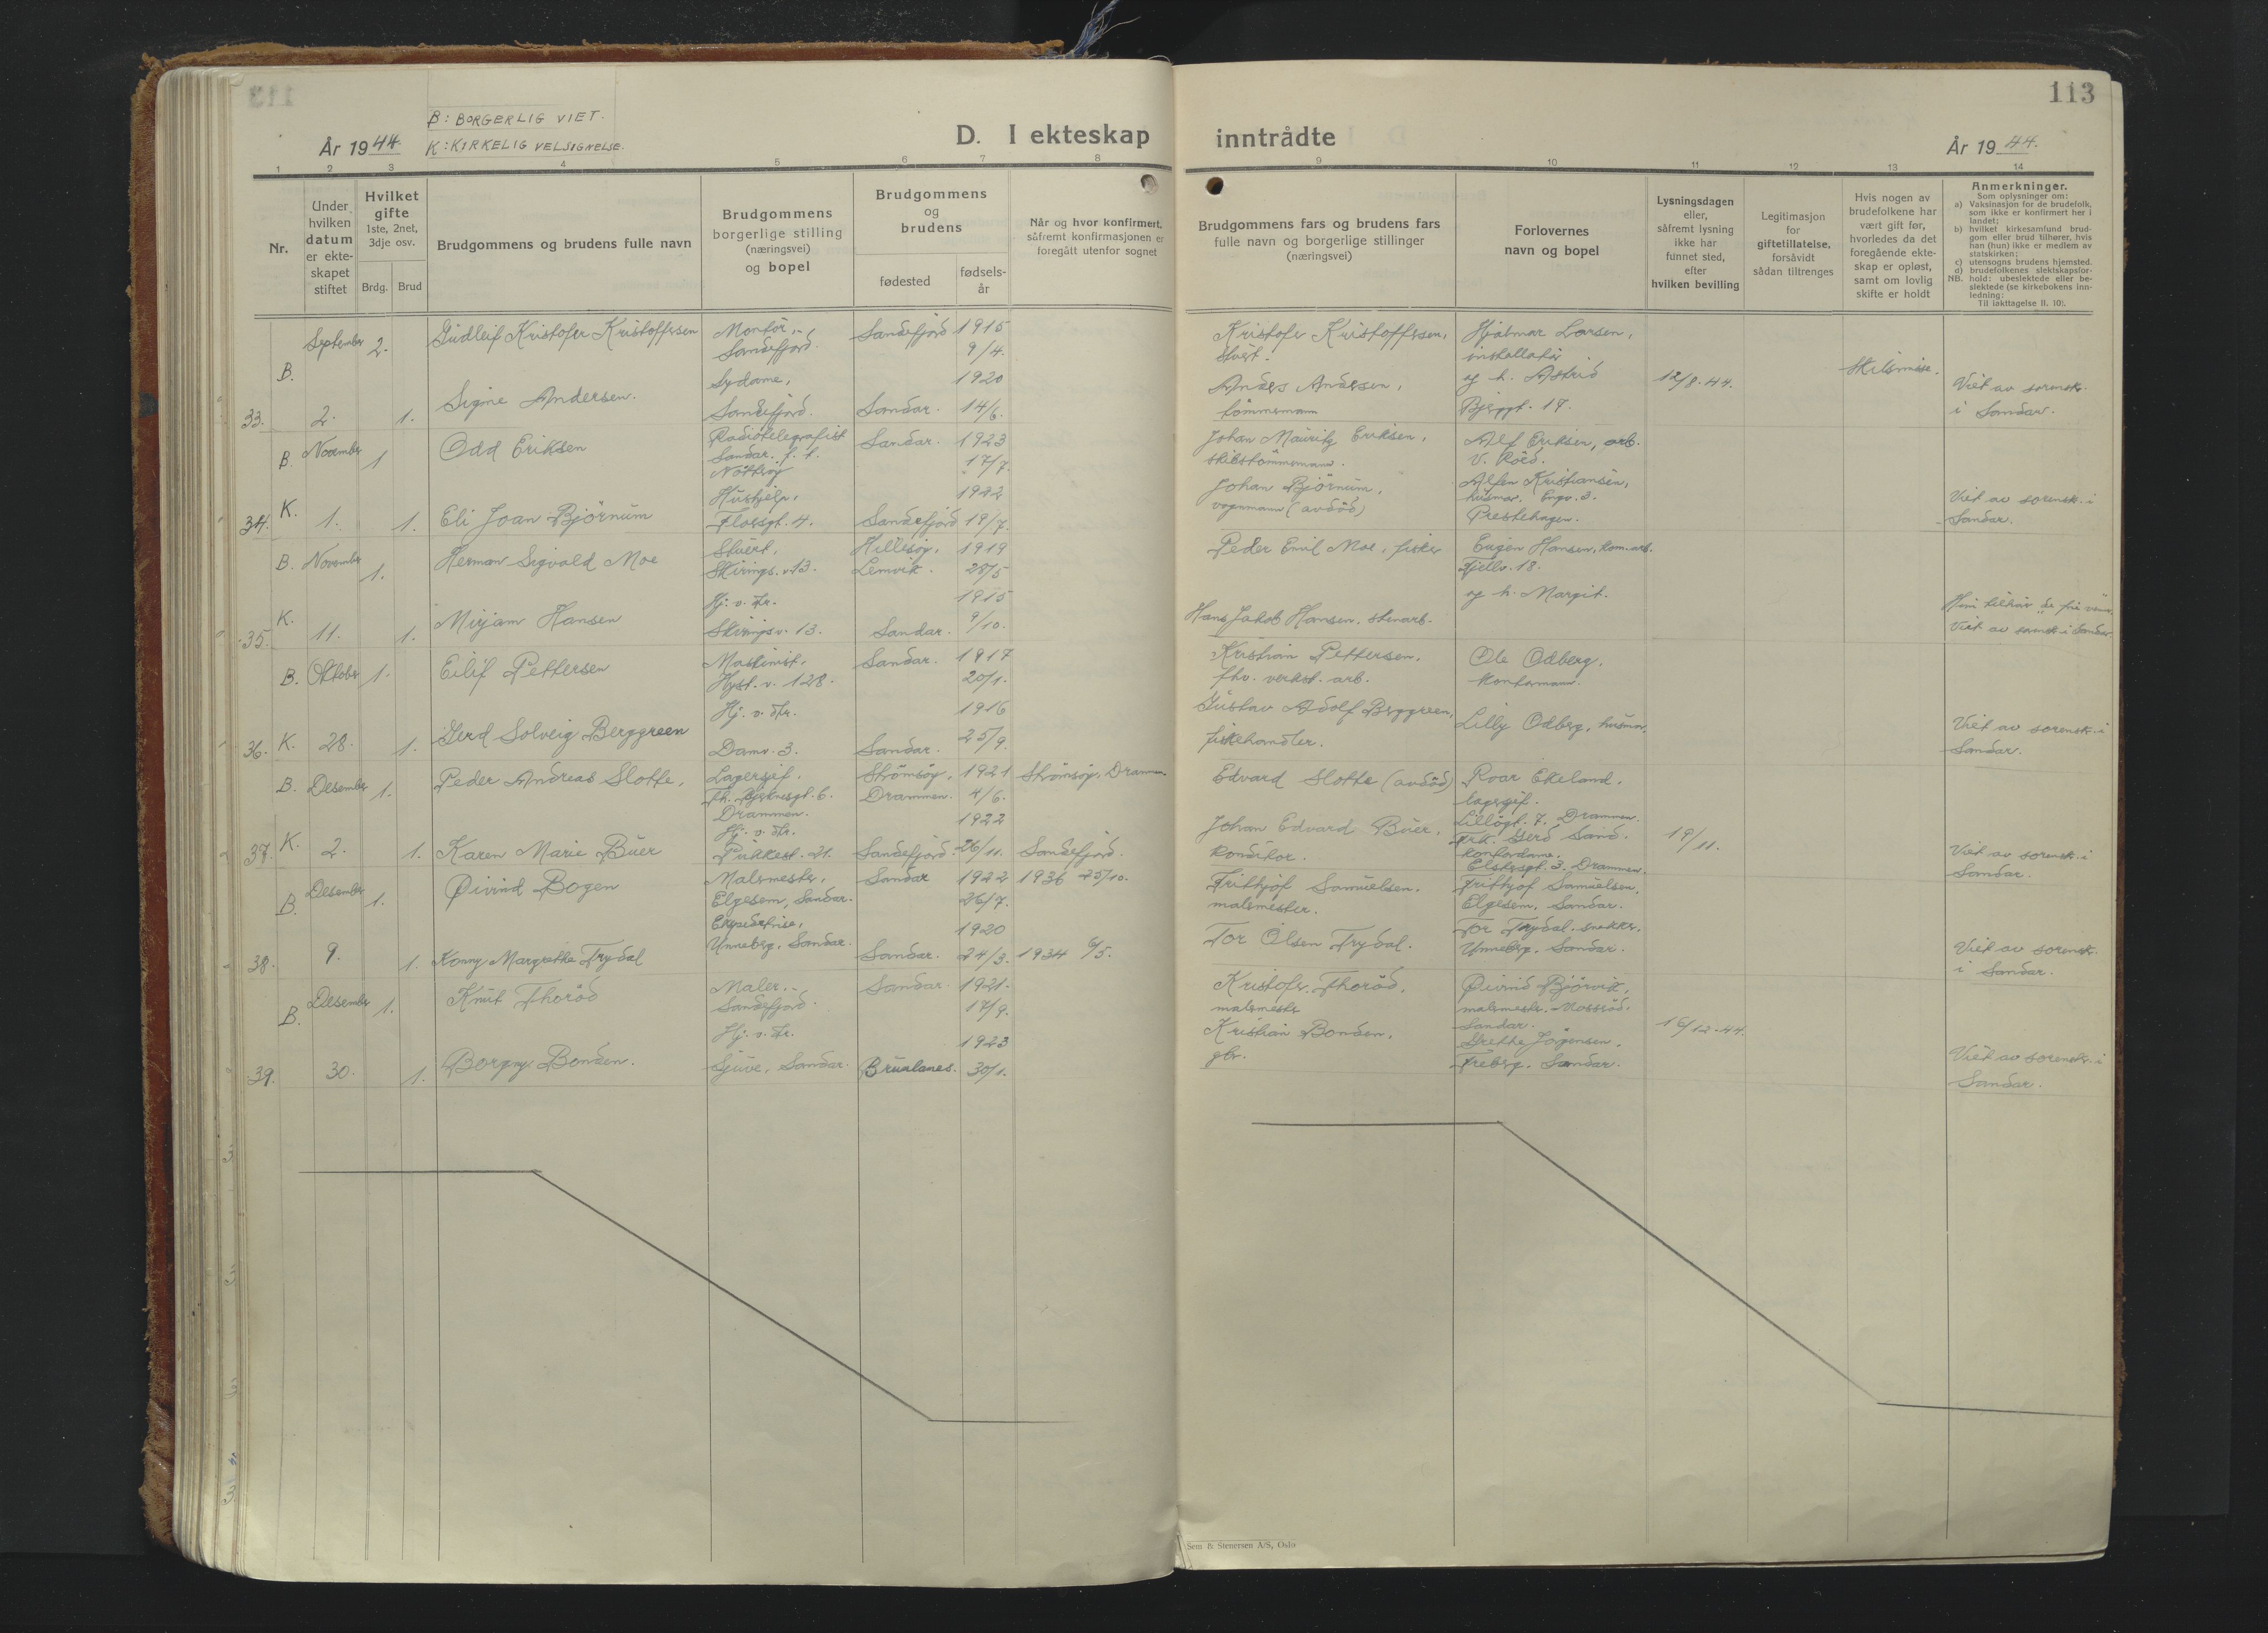 113
B: BORGERLIG VIET.
K: KIRKELIG VELSIGNELSE.
År 1944.
D. I ekteskap inntrådte
År 1944.
1 2 3 4 5 6 7 8 9 10 11 12 13 14
Nr.
Under hvilken datum er ekte-skapet stiftet
Hvilket gifte 1ste, 2net, 3dje osv.
Brdg. Brud
Brudgommens og brudens fulle navn
Brudgommens borgerlige stilling (næringsvei) og bopel
Brudgommens og brudens
fødested
fødsels-år
Når og hvor konfirmert, såfremt konfirmasjonen er foregått utenfor sognet
Brudgommens fars og brudens fars fulle navn og borgerlige stillinger (næringsvei)
Forlovernes navn og bopel
Lysningsdagen eller, såfremt lysning ikke har funnet sted, efter hvilken bevilling
Legitimasjon for giftetillatelse, forsåvidt sådan tiltrenges
Hvis nogen av brudefolkene har vært gift før, hvorledes da det foregående ekte-skap er opløst, samt om lovlig skifte er holdt
Anmerkninger.
Som oplysninger om:
a) Vaksinasjon for de brudefolk, som ikke er konfirmert her i landet;
b) hvilket kirkesamfund brud-gom eller brud tilhører, hvis han (hun) ikke er medlem av statskirken;
c) utensogns brudens hjemsted.
d) brudefolkenes slektskapsfor-hold: ubeslektede eller be-slektede (se kirkebokens inn-ledning:
NB. Til iakttagelse II. 10).
33. B. September 2. 2. 1.
Gudleif Kristofer Kristoffersen
Montør, Sandefjord.
Sandefjord 1915 9/4.
Kristofer Kristoffersen, stuert.
Hjalmar Larsen, installatør
og h. Astrid
Bjerggt. 17.
12/8.44.
Skilsmisse.
Signe Andersen.
Sydame, Sandefjord.
Sandar. 1920 14/6.
Anders Andersen, tömmermann
Viet av sorensk. i Sandar.
34. B. K. November 1. 1 1.
Odd Eriksen
Radiotelegrafist Sandar. f. t. Nötteröy
Sandar. 1923 17/7.
Johan Mauritz Eriksen, skibstömmermann.
Alf Eriksen, arb. V. Röed.
Eli Joan Björnum
Hushjelp, Florsgt. 4.
Sandefjord 1922 19/7.
Johan Björnum, vognmann (avdöd)
Alfen Kristiansen, husmor. Engv. 3. Prestehagen.
Viet av sorensk. i Sandar.
35. B. K. November 11. 1. 1.
Herman Sigvald Moe
Stuert, Skirings.v. 13.
Hillesöy, Lenvik. 1919 28/5
Peder Emil Moe, fisker
Eugen Hansen, kom.arb. Fjellv. 18.
og h. Margit.
Mirjam Hansen
Hj. v. Fr. Skiringsv. 13.
Sandar. 1915 9/10.
Hans Jakob Hansen, stenarb.
Viet av sorensk. i Sandar.
36. B. K. Oktober 28. 1. 1.
Eilif Pettersen
Maskinist, Hyst. v. 128.
Sandar. 1917 20/1.
Kristian Pettersen, fhv. verkst. arb.
Ole Odberg, kontormann.
Gerd Solveig Berggreen
Hj. v. Fr. Damv. 3.
Sandar. 1916 25/9.
Gustav Adolf Berggreen, fiskehandler.
Lilly Odberg, husmor.
Viet av sorensk. i Sandar.
37. B. K. Desember 2. 1. 1.
Peder Andreas Slotte,
Lagersjef, Th. Bjerknesgt. 6. Drammen.
Strömsöy, Drammen. 1921 4/6.
Strömsöy, Drammen
Edvard Slotte (avdöd)
Roar Ekeland, lagersjef. Lillögt. 7. Drammen.
Karen Marie Buer
Hj. v. Fr. Pukkest. 21.
Sandefjord. 1922 26/11. Sandefjord.
Johan Edvard Buer, konditor.
Frk. Gerd Sand. kontordame. Elskersgt. 3. Drammen.
19/11.
Viet av sorensk. i Sandar.
38. B. Desember 9. 1. 1.
Øivind Bogen
Malermester, Elgesem, Sandar.
Sandar 1922 26/7. 1936 25/10.
Frithjof Samuelsen, malermester.
Frithjof Samuelsen, Elgesem, Sandar.
Konny Margrethe Trydal
Ekspeditrise, Unneberg, Sandar.
Sandar. 1920 24/3. 1934 6/5.
Tor Olsen Trydal.
Tor Trydal. snekker. Unneberg, Sandar.
Viet av sorensk. i Sandar.
39. B. Desember 30. 1. 1.
Knut Thoröd
Maler, Sandefjord.
Sandar. 1921. 17/9.
Kristofer Thoröd, malermester
Øivind Björvik, malermester. Mossröd. Sandar.
16/12.44.
Borgny Bonden.
Hj. v. Fr. Ljuve, Sandar.
Brunlanes. 1923 30/1.
Kristian Bonden, gbr.
Grethe Jörgensen, Freberg, Sandar.
Viet av sorensk. i Sandar.
Sem & Stenersen A/S, Oslo